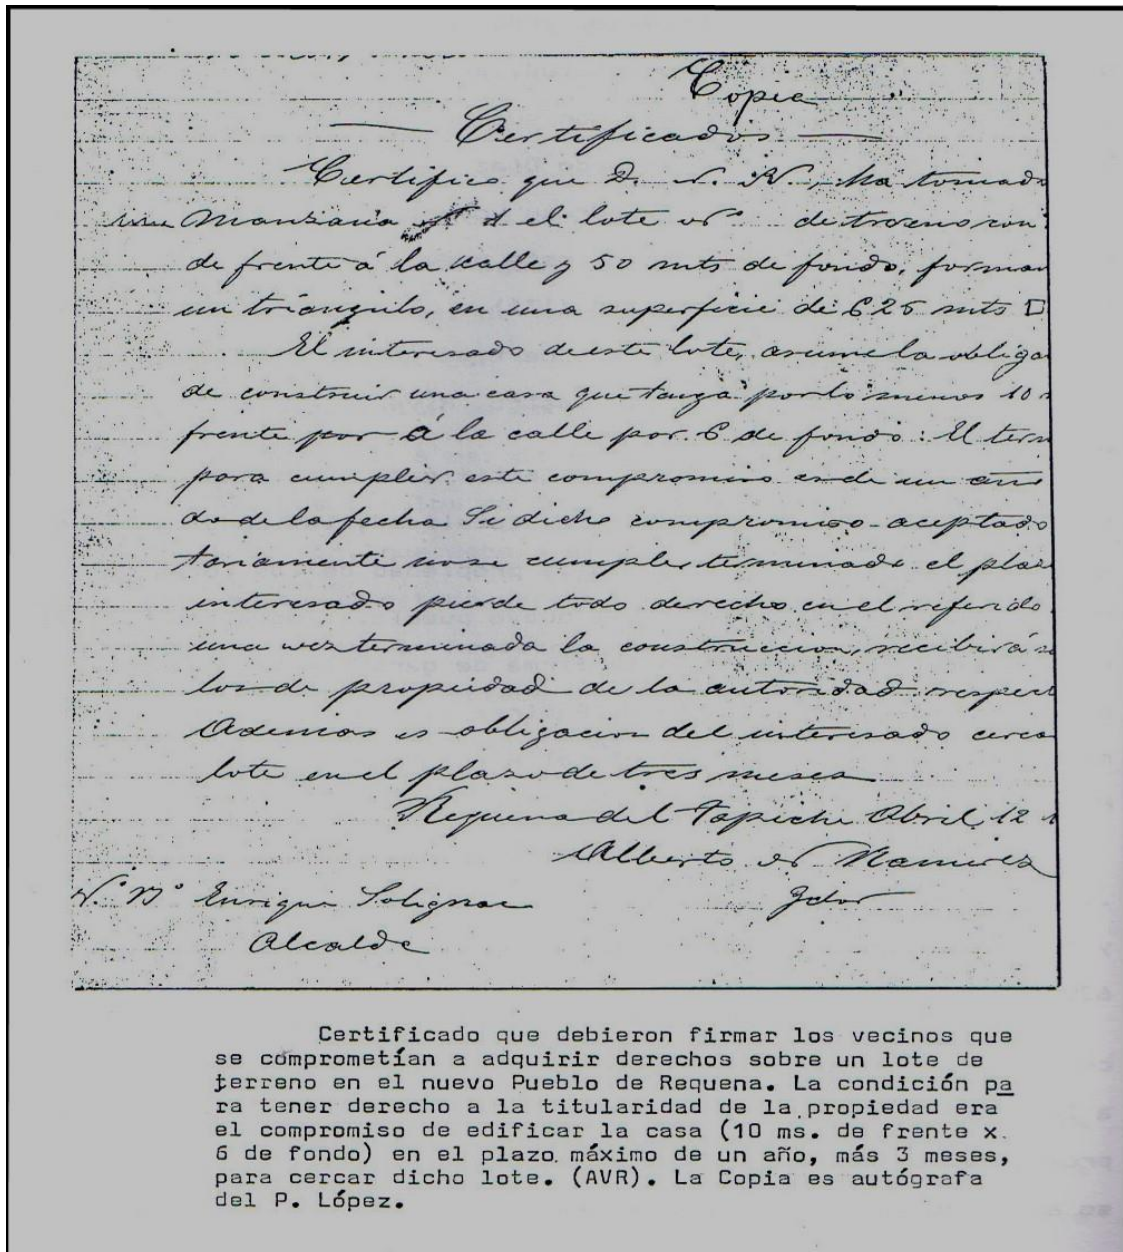 Copia
Certificados
Certifico que D. N. N., ha tomado
una Manzana el lote Nº de terreno con
de frente á la calle y 50 mts de fondo, forman
un triangulo, en una superficie de 625 mts □
El interesado de este lote, asume la obliga
de construir una casa que tenga por lo menos 10
frente por á la calle por 6 de fondo: El term
para cumplir este compromiso es de un año
do de la fecha Si dicho compromiso aceptado
tariamente no se cumple, terminado el plaz
interesado pierde todo derecho en el referido
una vez terminada la construccion, recibirá
los de propiedad de la autoridad respect
Ademas es obligacion del interesado cerca
lote en el plazo de tres meses
Requena del Tapiche Abril 12
Alberto N Ramirez
Vº Bº Enrique Solignac
Gdor
Alcalde
Certificado que debieron firmar los vecinos que
se comprometían a adquirir derechos sobre un lote de
terreno en el nuevo Pueblo de Requena. La condición pa
ra tener derecho a la titularidad de la propiedad era
el compromiso de edificar la casa (10 ms. de frente x
6 de fondo) en el plazo máximo de un año, más 3 meses,
para cercar dicho lote. (AVR). La Copia es autógrafa
del P. López.